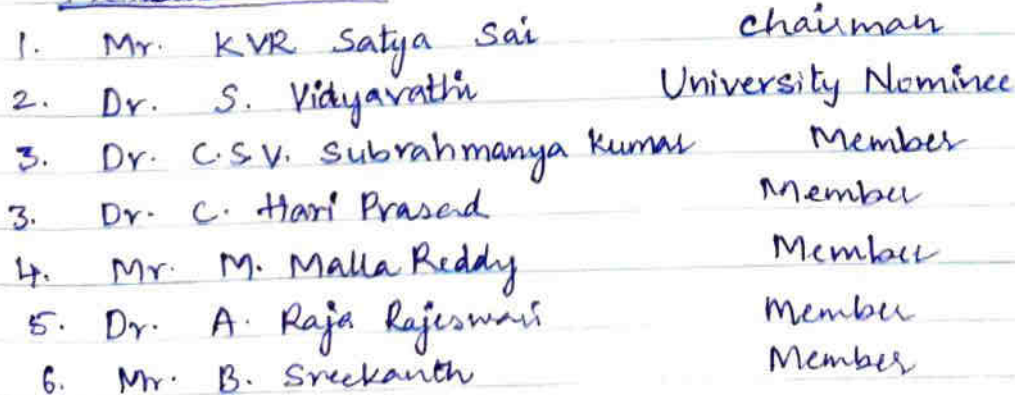 1. Mr. KVR Satya Sai Chairman
2. Dr. S. Vidyavathi University Nominee
3. Dr. C.S.V. Subrahmanya Kumar Member
3. Dr. C. Hari Prasad Member
4. Mr. M. Malla Reddy Member
5. Dr. A. Raja Rajeswari Member
6. Mr. B. Sreekanth Member